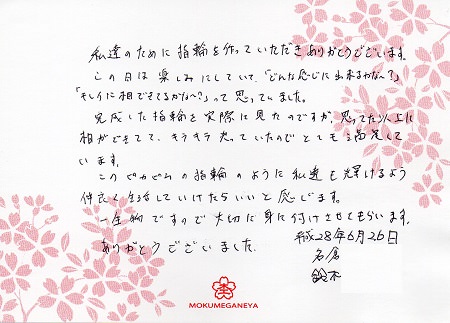 私達のために指輪を作っていただきありがとうございます。
この日は楽しみにしていて、「どんな感じに出来るかな〜?」
「キレイに相できてるかな〜?」って思っていました。
完成した指輪を実際に見たのですが、思ってた以上に
相ができてて、キラキラ光っていたのでとても満足して
います。
このピカピカの指輪のように私達も輝けるよう
仲良く生活していけたらいいと感じます。
一生物ですので大切に身に付けさせてもらいます。
ありがとうございました。
平成28年6月26日
名倉
鈴木
MOKUMEGANEYA